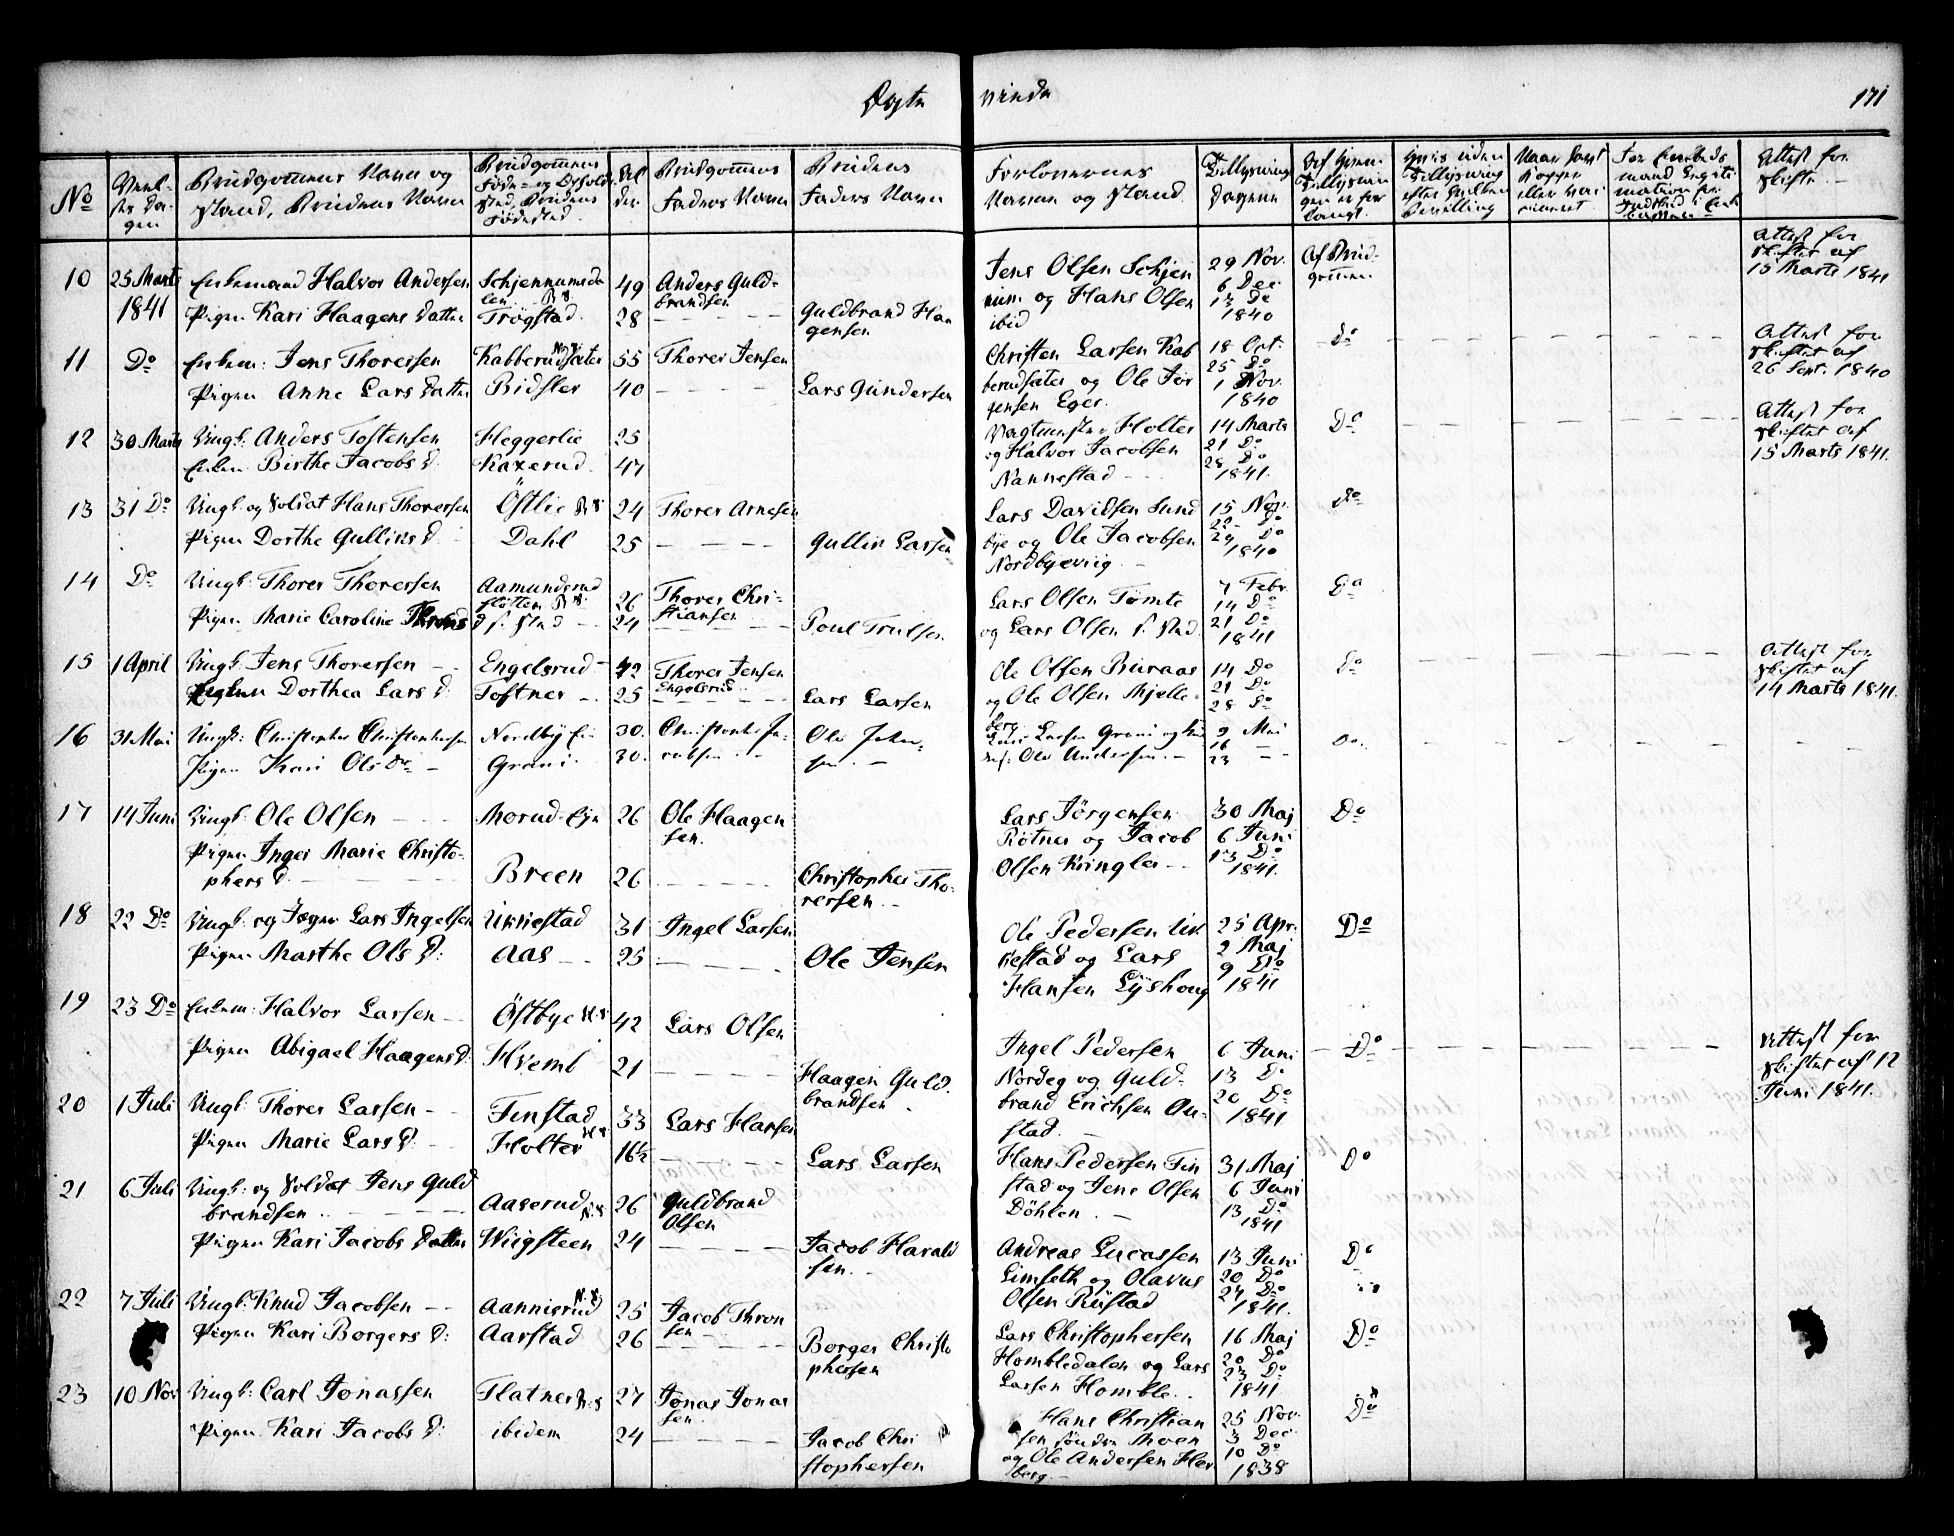 Ægte viede 171
No
Vielsesdagen
Brudgommens Navn og Stand, Brudens Navn
Brudgommens Føde- og Opholdssted, Brudens Fødested
Alder
Brudgommens Faders Navn
Brudens Faders Navn
Forlovernes Navne og Stand
Tillysnings Dagene
Af hvem Tillysningen er forlangt
Hvis uden Tillysning efter hvilken Bevilling
Attest for Skifte
10 25 Marts 1841
Enkemand Halvor Andersen
Pigen Kari Haagens Datter
Trøgstad
49
28
Anders Guldbrandsen
Guldbrand Haagensen
Jens Olsen Schjennum og Hans Olsen ibid
29 Nov.
6 Dec
13 Do
1840
Af Brudgommen
Attest for Skiftet af 15 Marts 1841
11 Do
Enkem: Jens Thoresen
Pigen Anne Lars Datter
Kabberudsæter
Bidsler
55
40
Thorer Jensen
Lars Gundersen
Christen Larsen Kabberudsæter og Ole Jørgensen Eger.
18 Oct.
25 Do
1 Nov.
1840
Do
Attest for Skiftet af 26 Sept. 1840
12 30 Marts
Ungk: Anders Tostensen
Enken Birthe Jacobs D.
Heggerlie
Kaxerud
25
47
Vagtmester Holter og Halvor Jacobsen Nannestad
14 Marts
21 Do
28 Do
1841.
Do
Attest for Skiftet af 15 Marts 1841.
13 31 Do
Ungk: og Soldat Hans Thoresen
Pigen Dorthe Gullins D.
Östlie
Dahl
24
25
Thorer Arnesen
Gullin Larsen
Lars Davidsen Sundbye og Ole Jacobsen Nordbyeviig.
15 Nov.
22 Do
29 Do
1840
Do
14 Do
Ungk: Thorer Thoresen
Pigen Marie Caroline
Aamundsrud
26
24
Thorer Christiansen
Poul Trulsen
Lars Olsen Tømte og Lars Olsen
7 Febr
14 Do
21 Do
1841
Do
15 1 April
Ungk: Jens Thoresen
Dorthea Lars D.
Engelsrud
Toftner
42
25
Thorer Jensen Engelsrud
Lars Larsen
Ole Olsen Buraas og Ole Olsen Mjelleberg.
14 Do
21 Do
28 Do
Do
Attest for Skiftet af 14 Marts 1841.
16 31 Mai
Ungk: Christopher Christophersen
Pigen Kari Ols Dr.
Nordby Ei
Grani
30.
30.
Christopher Jacobsen
Ole Johnsen
Larsen Grani og
Ole Andersen.
9 Mai
16 —
23 —
Do.
17 14 Juni
Ungk: Ole Olsen
Pigen Inger Marie Christophers D.
Morud Eje
Breen
26
26
Ole Haagensen.
Christopher Thoresen.
Lars Jørgensen Røtnes og Jacob Olsen Kringler
30 Maj
6 Juni
13 Do.
1841.
Do
18 22 Do
Ungk: og Jæger Lars Ingelsen
Pigen Marthe Ols D:
Ukkestad
Aas
31
25
Ingel Larsen
Ole Jensen
Ole Pedersen Ukkestad og Lars Hansen Lÿshoug
25 Apr.
2 Maj
9 Do
1841
Do
19 23 Do
Enkem: Halvor Larsen
Pigen Abigael Haagens D.
Östbye
Hvemb
42
21
Lars Olsen
Haagen Guldbrandsen
Ingel Pedersen Nordeg og Guldbrand Erichsen Austad.
6 Juni
13 Do
20 Do
1841
Do
Attest for Skiftet af 12 Juni 1841.
20 1 Juli
Ungk: Thorer Larsen
Pigen Marie Lars D.
Finstad
Holter
33
16½
Lars Hansen
Lars Larsen
Hans Pedersen Finstad og Jens Olsen Döhlen.
31 Maj
6 Juni
13 Do
1841
Do
21 6 Juli
Ungk: og Soldat Jens Guldbrandsen
Pigen Kari Jacobs Datter
Aaserud
Wiigsteen
26
24
Guldbrand Olsen
Jacob Haraldsen.
Andreas Lucassen Limseth og Olavus Olsen Rustad
13 Juni
20 Do
27 Do
1841.
Do
22 7 Juli
Ungk: Knud Jacobsen
Pigen Kari Borgers D:
Aannisrud
Aarstad
25
26
Jacob Thronsen
Borger Christophersen
Lars Christophersen Hombledalen og Lars Larsen Homble.
16 Maj
20 Do
23 Do
1841
Do
23 10 Nov
Ungk: Carl Jonassen
Pigen Kari Jacobs D:
Flatner
ibidem
27
24
Jonas Jonassen.
Jacob Christophersen
Hans Christiansen søndre Moen og Ole Andersen Herberg.
25 Nov.
3 Dec
10 Do
1838
Do